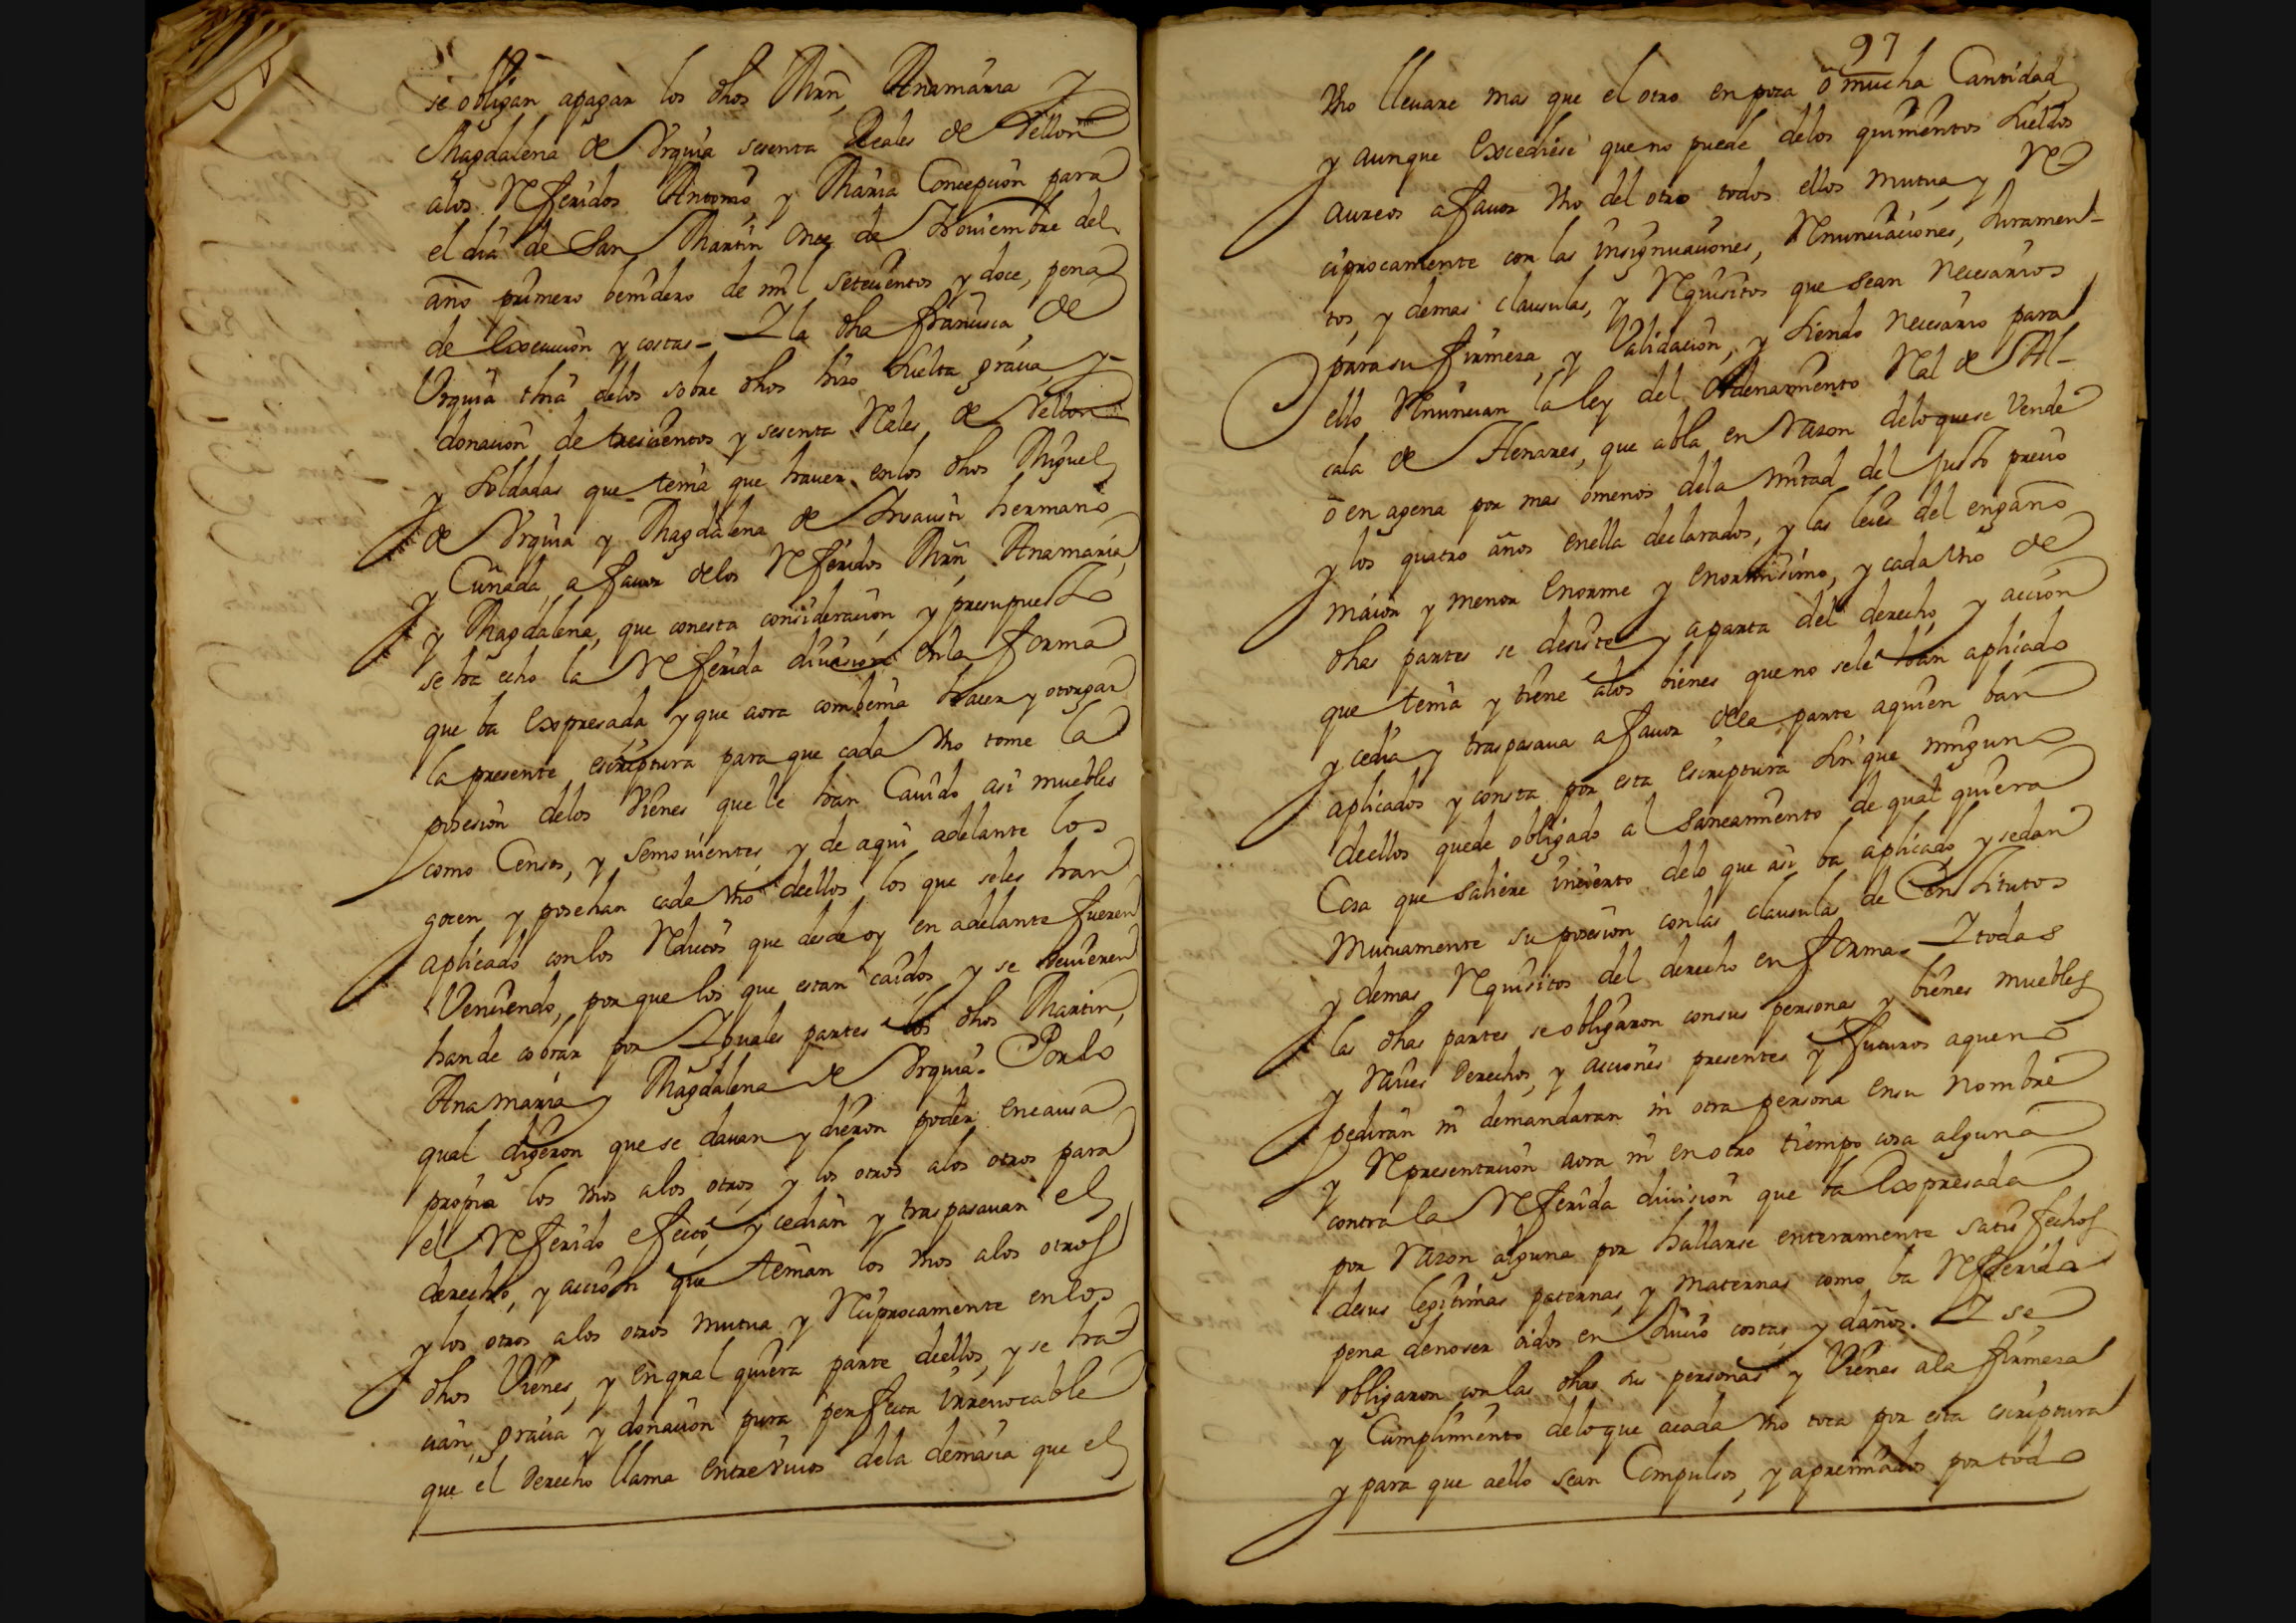 se obligan apagar los dhos Mrñ, Anamaria y
Magdalena de Vrquia sesenta Reales de Vellon
alos Referidos Antonio, y Maria Concepcion para
el dia de San Martin onze de Noviembre del
año primero benidero de mil setecientos y doce, pena
de Execucion y costas - Y la dha francisca de
Vrquia thia dellos sobre dhos hizo suelta gracia, y
donacion de trescientos y sesenta Rales de Vellon
y Soldadas que tenia que hauer en los dhos Miguel
de Vrquia y Magdalena de Insausti hermano
y Cuñada, a fauor delos Referidos Mrñ, Anamaria,
y Magdalena, que conesta consideracion, y presupuesto
se ha echo la Referida diuision enla forma
que ba Expresada, y que aora combenia hacer y otorgar
la presente escriptura para que cada Vno tome la
posesion delos Vienes que le han Cauido asi muebles
como Censos, y Semouientes, y de aqui adelante los
gocen y posehan cada Vno deellos los que seles han
aplicado con los Reditos que desde oy en adelante fueren
Venciendo, por que los que estan caidos, y se deuieren
hande cobrar por Yguales partes los dhos Martin,
Anamaria y Magdalena de Vrquia. Por lo
qual digeron que se dauan y dieron poder en causa
propia los Vnos alos otros, y los otros alos otros para
el Referido efecto, y cedian y traspasauan el
derecho, y accion que tenian los Vnos alos otros
y los otros alos otros mutua y Reciprocamente enlos
dhos Vienes, y en qual quiera parte deellos, y se ha
cian, gracia y donacion pura perfecta irreuocable
que el Derecho llama entreviuos dela demasia que el
97
Vno lleuare mas que el otro en poca ô mucha Cantidad
y aunque Excediese que no puede delos quinientos Sueldos
aureos a fauor Vno del otro todos ellos mutua, y Re
ciprocamente con las insignuaciones, Renunciaciones, Juramen-
tos, y demas clausulas, y Requisitos que sean necesarios
para su firmeza, y Validacion, y siendo necesario para
ello Renuncian la ley del Ordenamiento Ral de Al-
cala de Henares, que abla en razon delo que se Vende
ô en agena por mas ômenos dela mitad del justo precio
y los quatro años enella declarados, y las leies del engaño
maior y menor Enorme y Enormisimo, y cada Vno de
dhas partes se desiste y aparta del derecho, y accion
que tenia y tiene alos bienes que no sele han aplicado
y cedia y traspasaua a fauor dela parte aquien ban
aplicados y consta por esta escriptura sin que ninguno
deellos quede obligado al saneamiento de qual quiera
Cosa que saliere incierto delo que asi ba aplicado, y sedan
Mutuamente su posesion conlas clausulas de Constitutos
y demas Requisitos del derecho en forma. Y todas
las dhas partes se obligaron consus personas y bienes muebles
y raices Derechos, y acciones presentes y futuros aqueno
pediran ni demandaran ni otra persona en su nombre
y Representacion aora ni en otro tiempo cosa alguna
contra la Referida diuision que ba Expresada
por razon alguna por hallarse enteramente satisfechos
desus legitimas paternas, y maternas como ba Referida
pena denoser oidos en Juicio costas, y daños. Y se
obligaron con las dhas sus personas y Vienes ala firmeza
y Cumplimiento delo que acada Vno toca por esta escriptura
y para que aello sean Compulsos, y apremiados por todo